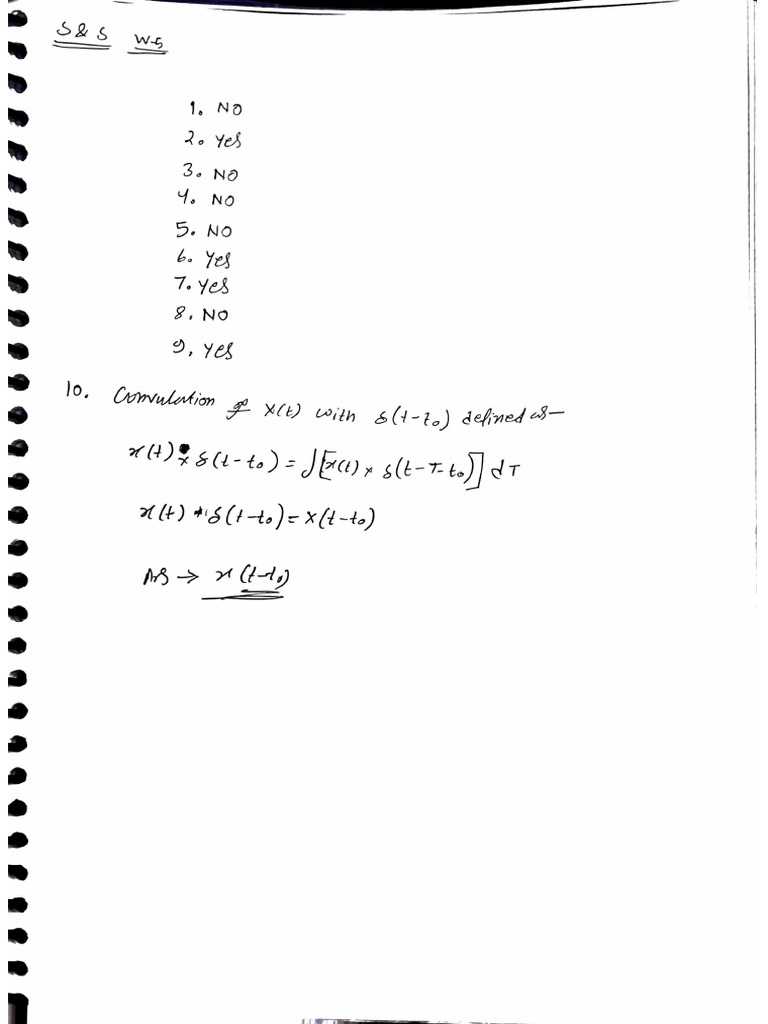 S & S W-5
1. NO
2. Yes
3. NO
4. NO
5. NO
6. Yes
7. Yes
8. NO
9, Yes
10. Convulation of X(t) with δ(t-t₀) defined as-
x(t) * δ(t-t₀) = ∫[x(t) × δ(t-T-t₀)] dT
x(t) * δ(t-t₀) = X(t-t₀)
→ x(t-t₀)